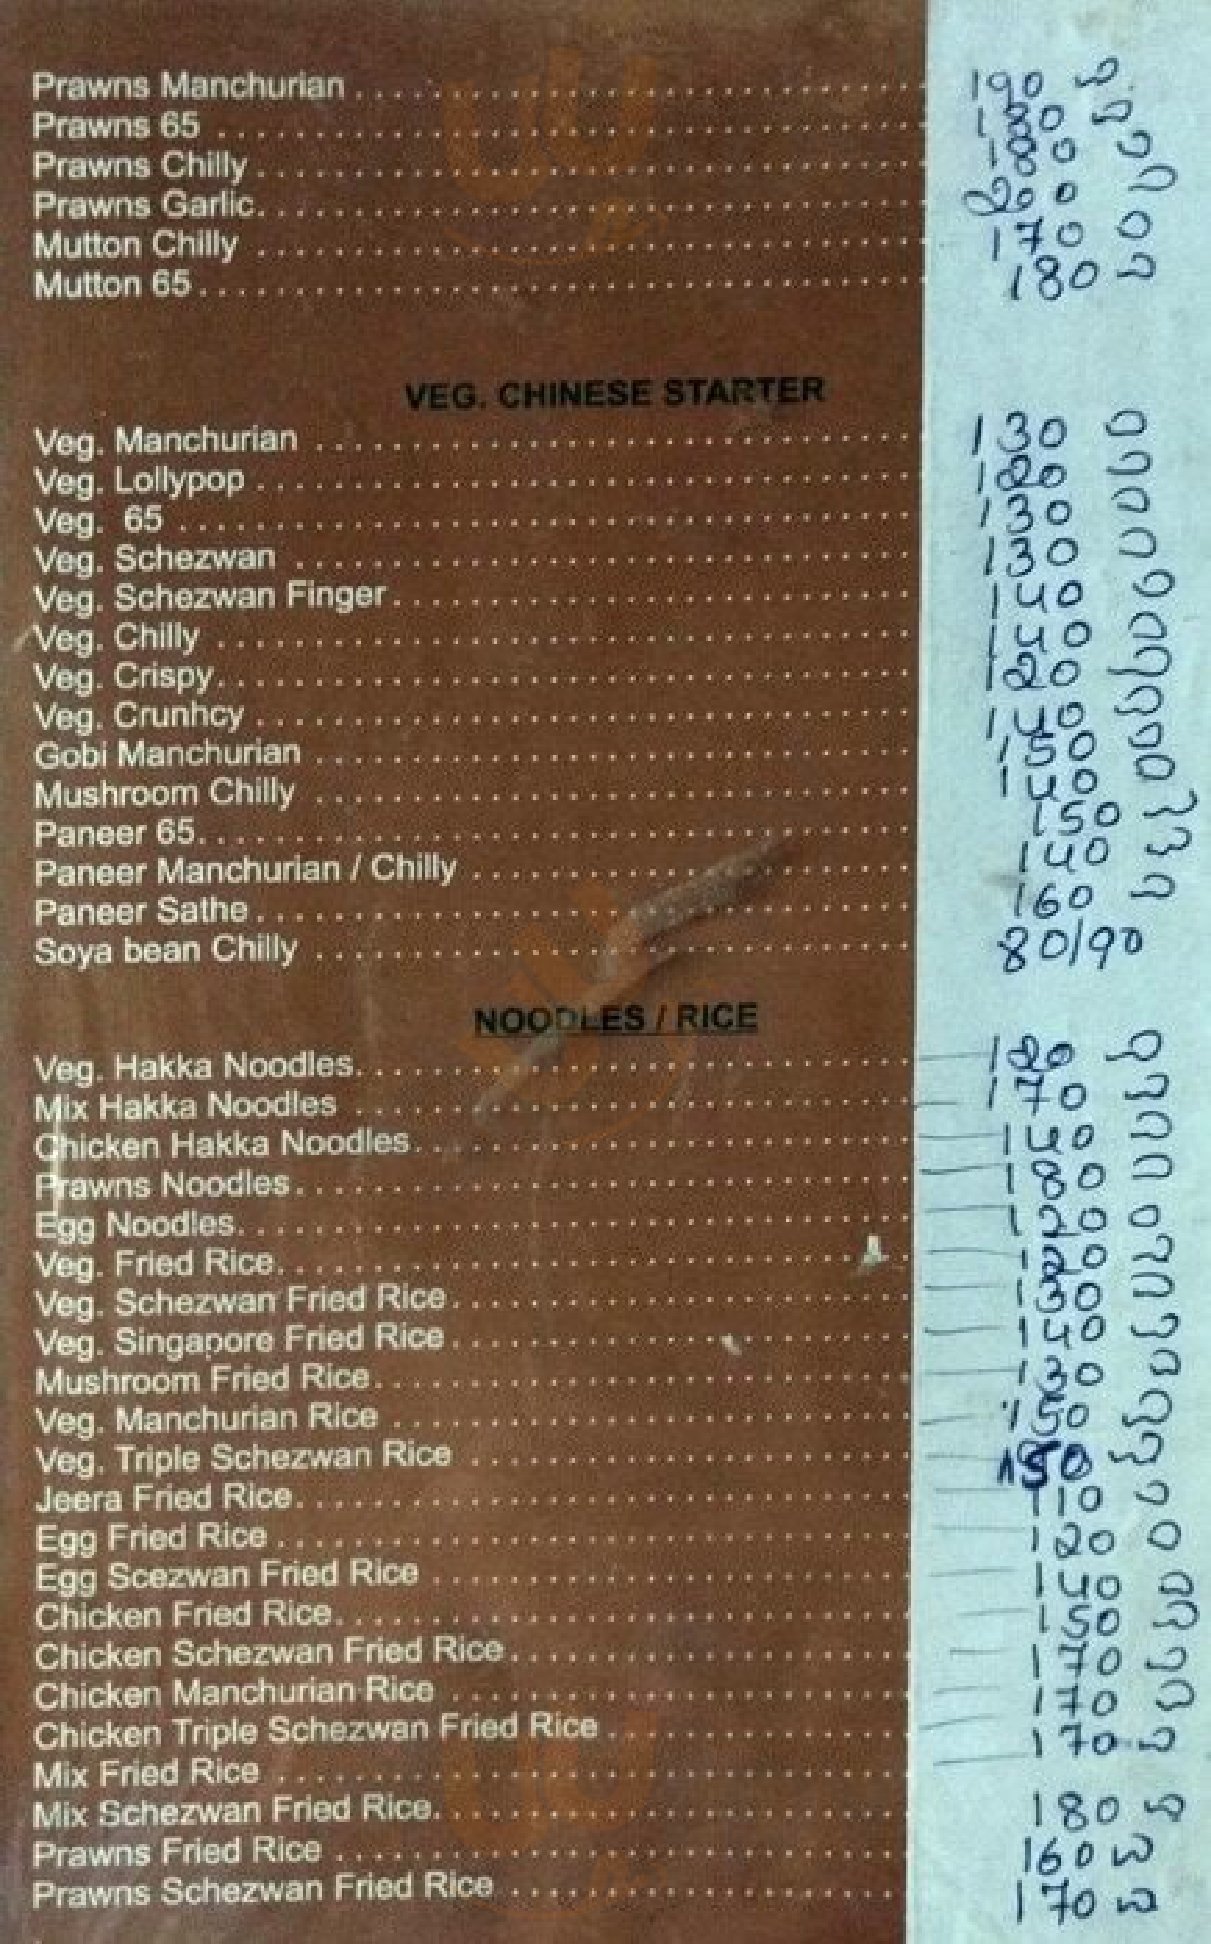 Prawns Manchurian 190
Prawns 65 180
Prawns Chilly 180
Prawns Garlic 200
Mutton Chilly 170
Mutton 65 180
VEG. CHINESE STARTER
Veg. Manchurian 130
Veg. Lollypop 120
Veg. 65 130
Veg. Schezwan 130
Veg. Schezwan Finger 140
Veg. Chilly 140
Veg. Crispy 120
Veg. Crunhcy 140
Gobi Manchurian 150
Mushroom Chilly 140
Paneer 65 150
Paneer Manchurian / Chilly 140
Paneer Sathe 160
Soya bean Chilly 80/90
NOODLES / RICE
Veg. Hakka Noodles 120
Mix Hakka Noodles 170
Chicken Hakka Noodles 140
Prawns Noodles 180
Egg Noodles 120
Veg. Fried Rice 120
Veg. Schezwan Fried Rice 130
Veg. Singapore Fried Rice 140
Mushroom Fried Rice 130
Veg. Manchurian Rice 150
Veg. Triple Schezwan Rice 150
Jeera Fried Rice 110
Egg Fried Rice 120
Egg Scezwan Fried Rice 140
Chicken Fried Rice 150
Chicken Schezwan Fried Rice 170
Chicken Manchurian Rice 170
Chicken Triple Schezwan Fried Rice 170
Mix Fried Rice
Mix Schezwan Fried Rice 180
Prawns Fried Rice 160
Prawns Schezwan Fried Rice 170